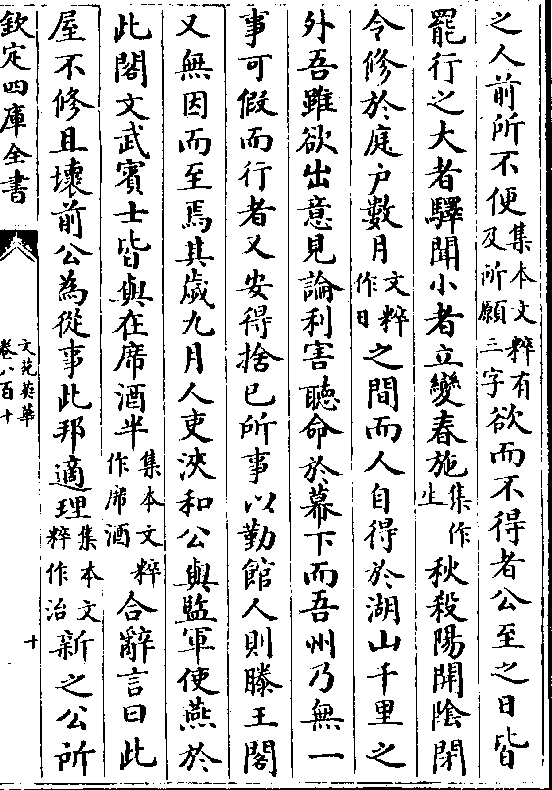 之人前所不便集本文粹有及所願三字欲而不得者公至之日皆
罷行之大者驛聞小者立變春施集作生秋殺陽開陰閉
令修於庭户數月文粹作日之間而人自得於湖山千里之
外吾雖欲出意見論利害聽命於幕下而吾州乃無一
事可假而行者又安得捨已所事以勤館人則滕王閣
又無因而至焉其歲九月人吏浹和公與監軍使燕於
此閣文武賓士皆與在席酒半集本文粹作席酒合辭言曰此
屋不修且壞前公為從事此邦適理集本文粹作治新之公所
欽定四庫全書
文苑英華
卷八百十
十